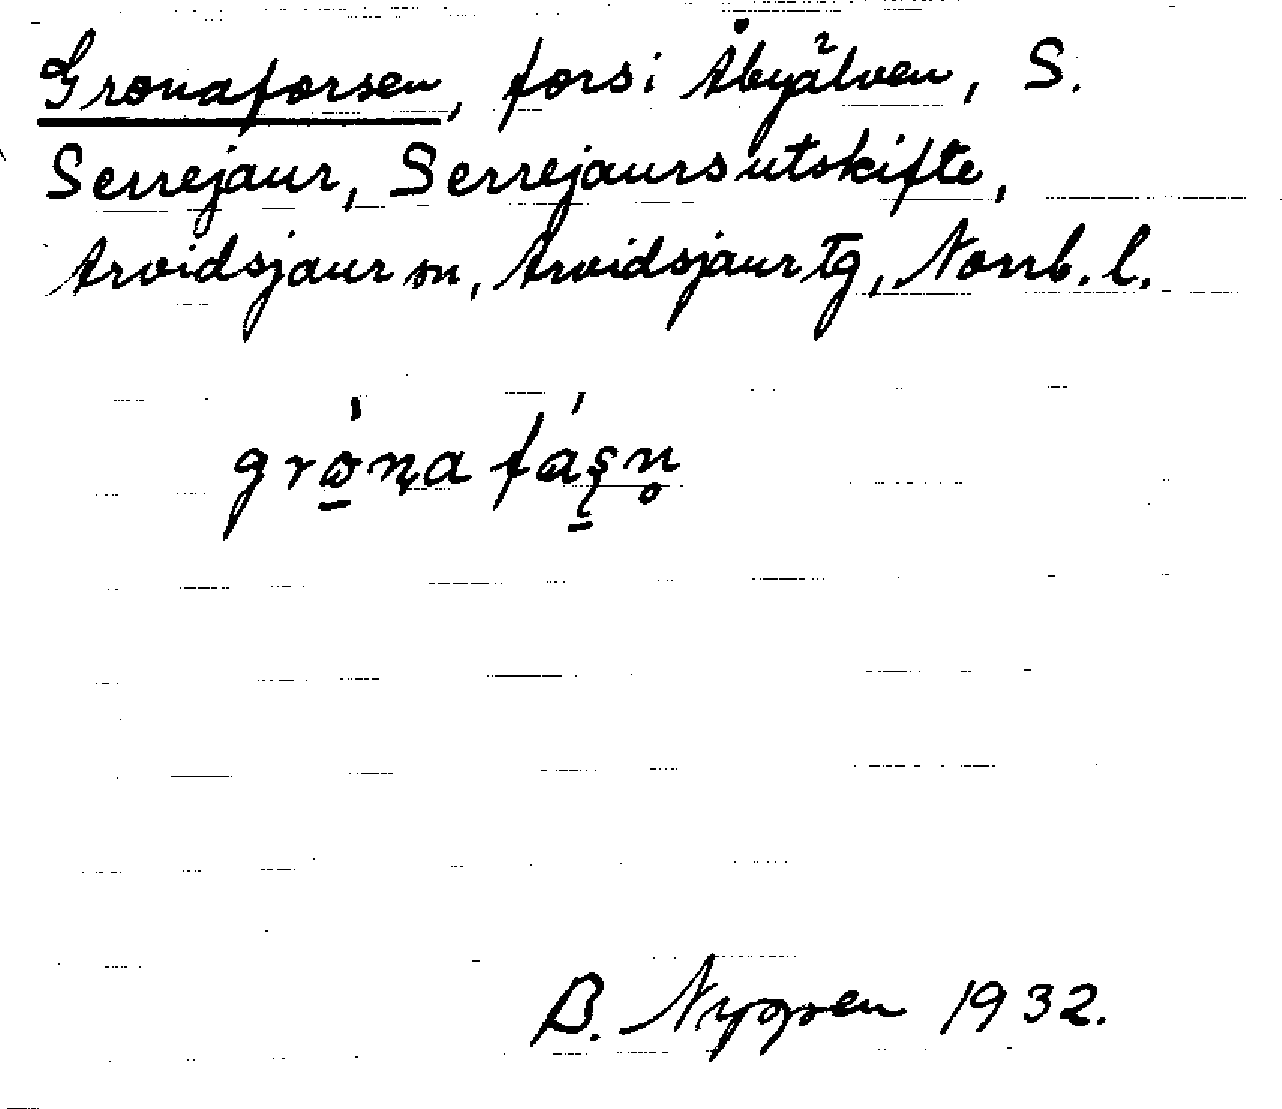 Gronaforsen, fors i Åbyälven, S.
Serrejaur, Serrejaurs utskifte,
Arvidsjaur sn, Arvidsjaur tg, Norrb. l.
B. Nygren 1932.